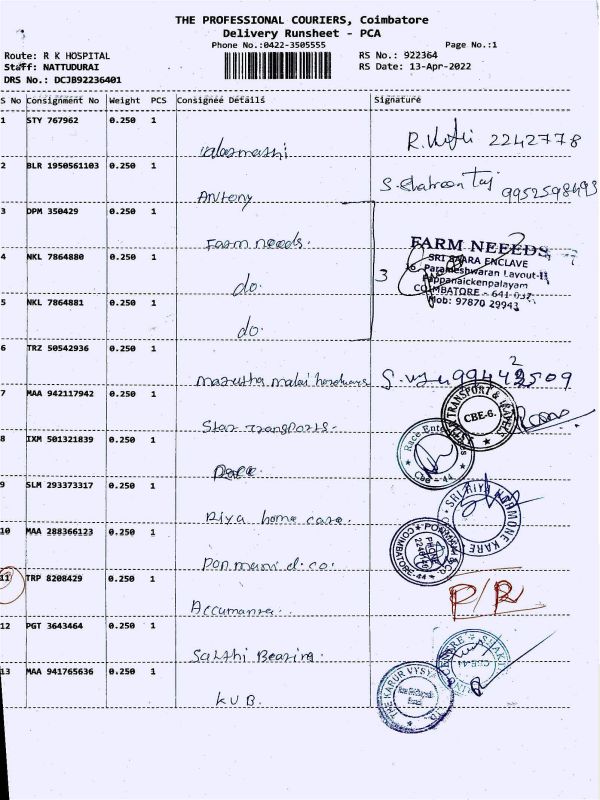 THE PROFESSIONAL COURIERS, Coimbatore
Delivery Runsheet - PCA
Phone No.:0422-3505555 Page No.:1
Route: R K HOSPITAL RS No.: 922364
Staff: NATTUDURAI RS Date: 13-Apr-2022
DRS No.: DCJB92236401
S No Consignment No Weight PCS Consignee Details Signature
1 STY 767962 0.250 1 2242778
2 BLR 1950561103 0.250 1 Antony
3 DPM 350429 0.250 1 Farm needs.
4 NKL 7864880 0.250 1 do. 3
FARM NEEEDS
SRI SAARA ENCLAVE
Parameshwaran Layout-II
Pappanaickenpalayam
COIMBATORE - 641 037
Mob: 97870 29943
5 NKL 7864881 0.250 1 do.
6 TRZ 50542936 0.250 1
7 MAA 942117942 0.250 1 Star Transports.
TRANSPORT & TRAVELS
CBE-6.
8 IXM 501321839 0.250 1 Race.
Race
Cbe - 44
9 SLM 293373317 0.250 1 Riya home care.
SRI RIYA HORMONE KARE
10 MAA 288366123 0.250 1 Ponmani & co.
COIMBATORE-44
11 TRP 8208429 0.250 1 P/R
12 PGT 3643464 0.250 1 Sakthi Bearing.
CENTRE SHAKTI
CBE-44
13 MAA 941765636 0.250 1 KVB.
THE KARUR VYSYA